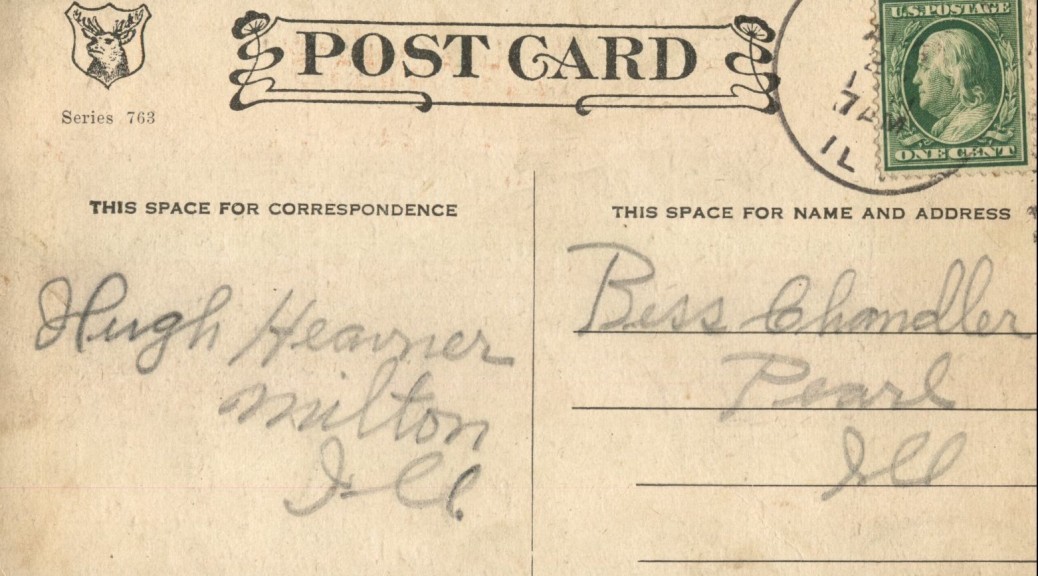 POST CARD
Series 763
U.S. POSTAGE
ONE CENT
7 AM
IL
THIS SPACE FOR CORRESPONDENCE
Hugh Heavner
Milton
Ill.
THIS SPACE FOR NAME AND ADDRESS
Bess Chandler
Pearl
Ill